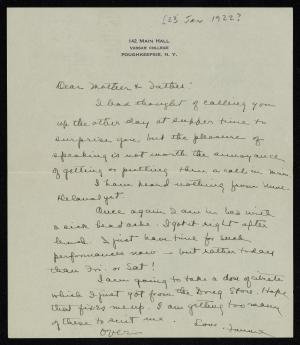 [23 Jan 1922?]
142 MAIN HALL
VASSAR COLLEGE
POUGHKEEPSIE, N. Y.
Dear Mother & Father:
I had thought of calling you
up the other day at supper time to
surprise you but the pleasure of
speaking is not worth the annoyance
of getting or putting thru a call in Main
I have heard nothing from
yet
Once again I am in bed with
a sick headache. I got it right after
lunch. I just have time for such
performances now – but rather today
than Fri. or Sat!
I am going to take a dose of
which I just got from the Drug Store. Hope
that fixes me up. I am getting too many
of these to suit me.
Love
Over